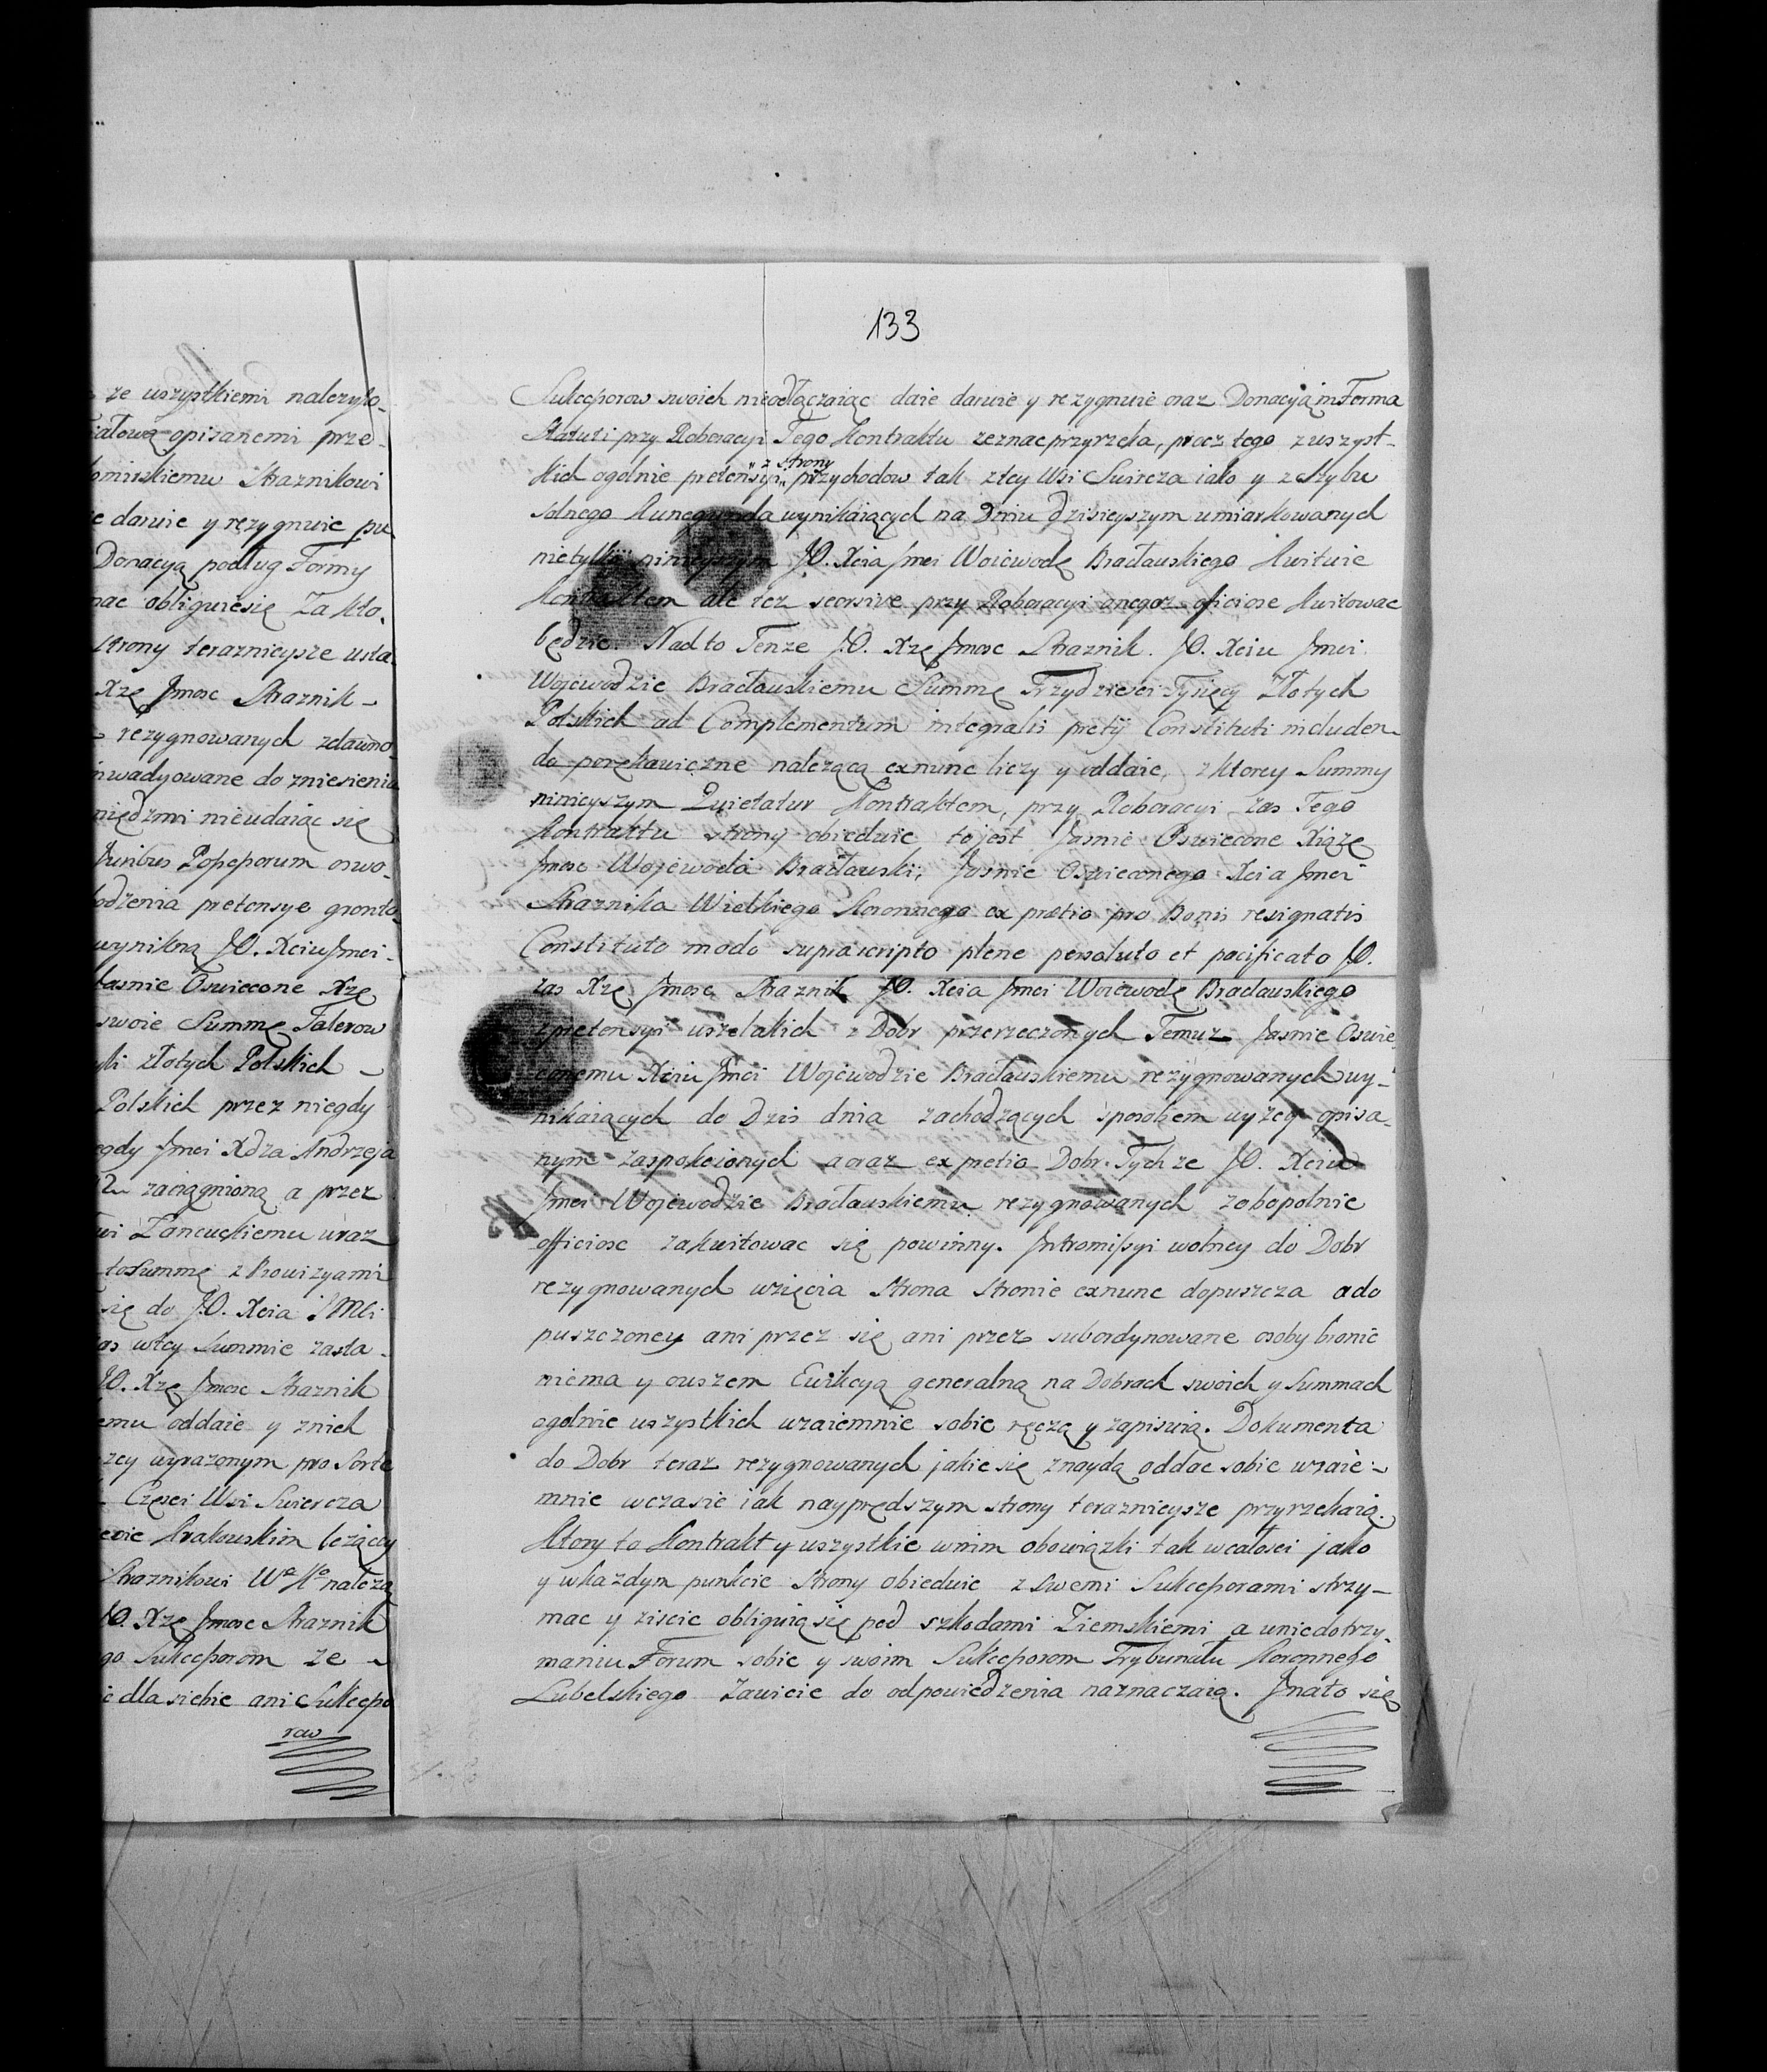 ze wszystkiemi nalezyto-
opisanemi prze-
Straznikowi
daruie y rezygnuie pu
Donacyą podług Formy
obliguiesię Za kto.
strony teraznieysze usta
Xzę Jmosc Straznik -
rezygnowanych zdawno
do zniesienia
nieudaiąc się
Juribus Possessorum oswo-
pretensye gronto
wynikną JO. Xciu Jmci -
Jasnie Oswiecone Xzę
swoie Summę Talerow
złotych Polskich -
Polskich przez niegdy
Jmci Xdza Andrzeja
zaciągnioną a przez
Łancuckiemu wraz
to Summę z Prowizyami
się do J.O. Xcia JMci
wtey Summie zasta-
JO. Xzę Jmosc Straznik
oddaie y znich
wyrazonym pro Sorte
Częsci Wsi Swiercza
Krakowskim lezącey
Straznikowi Wo Ko nalezą
JO. Xzę Jmosc Straznik
Sukcessorom ze -
dla siebie ani Sukcesso
row
133
Sukcessorow swoich nieodłączaiąc daie daruie y rezygnuie oraz Donacyią in Forma
Statuti przy Roboracyi Tego Kontraktu zeznac przyrzeka, procz tego z wszyst-
kich ogolnie pretensyi „z strony„ przychodow tak z tey Wsi Swircza iako y z Szybu
solnego Kunegunda wynikaiących na Dniu dzisieyszym umiarkowanych
nietylko ninieyszym JO. Xcia Jmci Woiewodę Bracławskiego kwituie
Kontraktem ale tez seorsive przy Roboracyi onegoz officiose kwitowac
będzie. Nad to Tenze J.O. Xzę Jmosc Straznik. JO. Xciu Jmci
Wojewodzie Bracławskiemu Summę Trzydziesci Tysięcy Złotych
Polskich ad Complementum integralis pretij Constituti includen-
do porękawiczne nalezącą exnunc liczy y oddaie, z ktorey Summy
ninieyszym Quietatur Kontraktem, przy Roboracyi zas Tego
Kontraktu strony obiedwie tojest Jasnie Oswiecone Xiąze
Jmosc Wojewoda Bracławski, Jasnie Oswieconego Xcia Jmci
Straznika Wielkiego Koronnego ex pretio pro Bonis resignatis
Constituto modo suprascripto plene persoluto et pacificato JO.
zas Xzę Jmosc Straznik JO. Xcia Jmci Woiewodę Bracławskiego
z pretensyi wszelakich z Dobr przerzeczonych Temuz Jasnie Oswie-
conemu Xciu Jmci Wojewodzie Bracławskiemu rezygnowanych wy-
nikaiących do Dzis dnia zachodzących sposobem wyzey opisa-
nym zaspokoionych a oraz ex pretio Dobr Tychze JO. Xciu
Jmci Wojewodzie Bracławskiemu rezygnowanych zobopolnie
officiose zakwitowac się powinny. Intromissyi wolney do Dobr
rezygnowanych wzięcia Strona Stronie exnunc dopuszcza a do
puszczoney ani przez się ani przez subordynowane osoby bronic
niema y owszem Ewikcyą generalną na Dobrach swoich y Summach
ogolnie wszystkich wzaiemnie sobie ręczą y zapisuią. Dokumenta
do Dobr teraz rezygnowanych jakie się znaydą oddac sobie wzaie-
mnie wczasie iak nayprędszym strony teraznieysze przyrzekaią.
Ktory to Kontrakt y wszystkie wnim obowiązki tak wcałosci jako
y wkazdym punkcie Strony obiedwie z Swemi Sukcessorami strzy-
mac y ziscic obliguią się pod szkodami Ziemskiemi a wniedotrzy-
maniu Forum sobie y swoim Sukcessorom Trybunału Koronnego
Lubelskiego Zawicie do odpowiedzenia naznaczaią. Jnato się